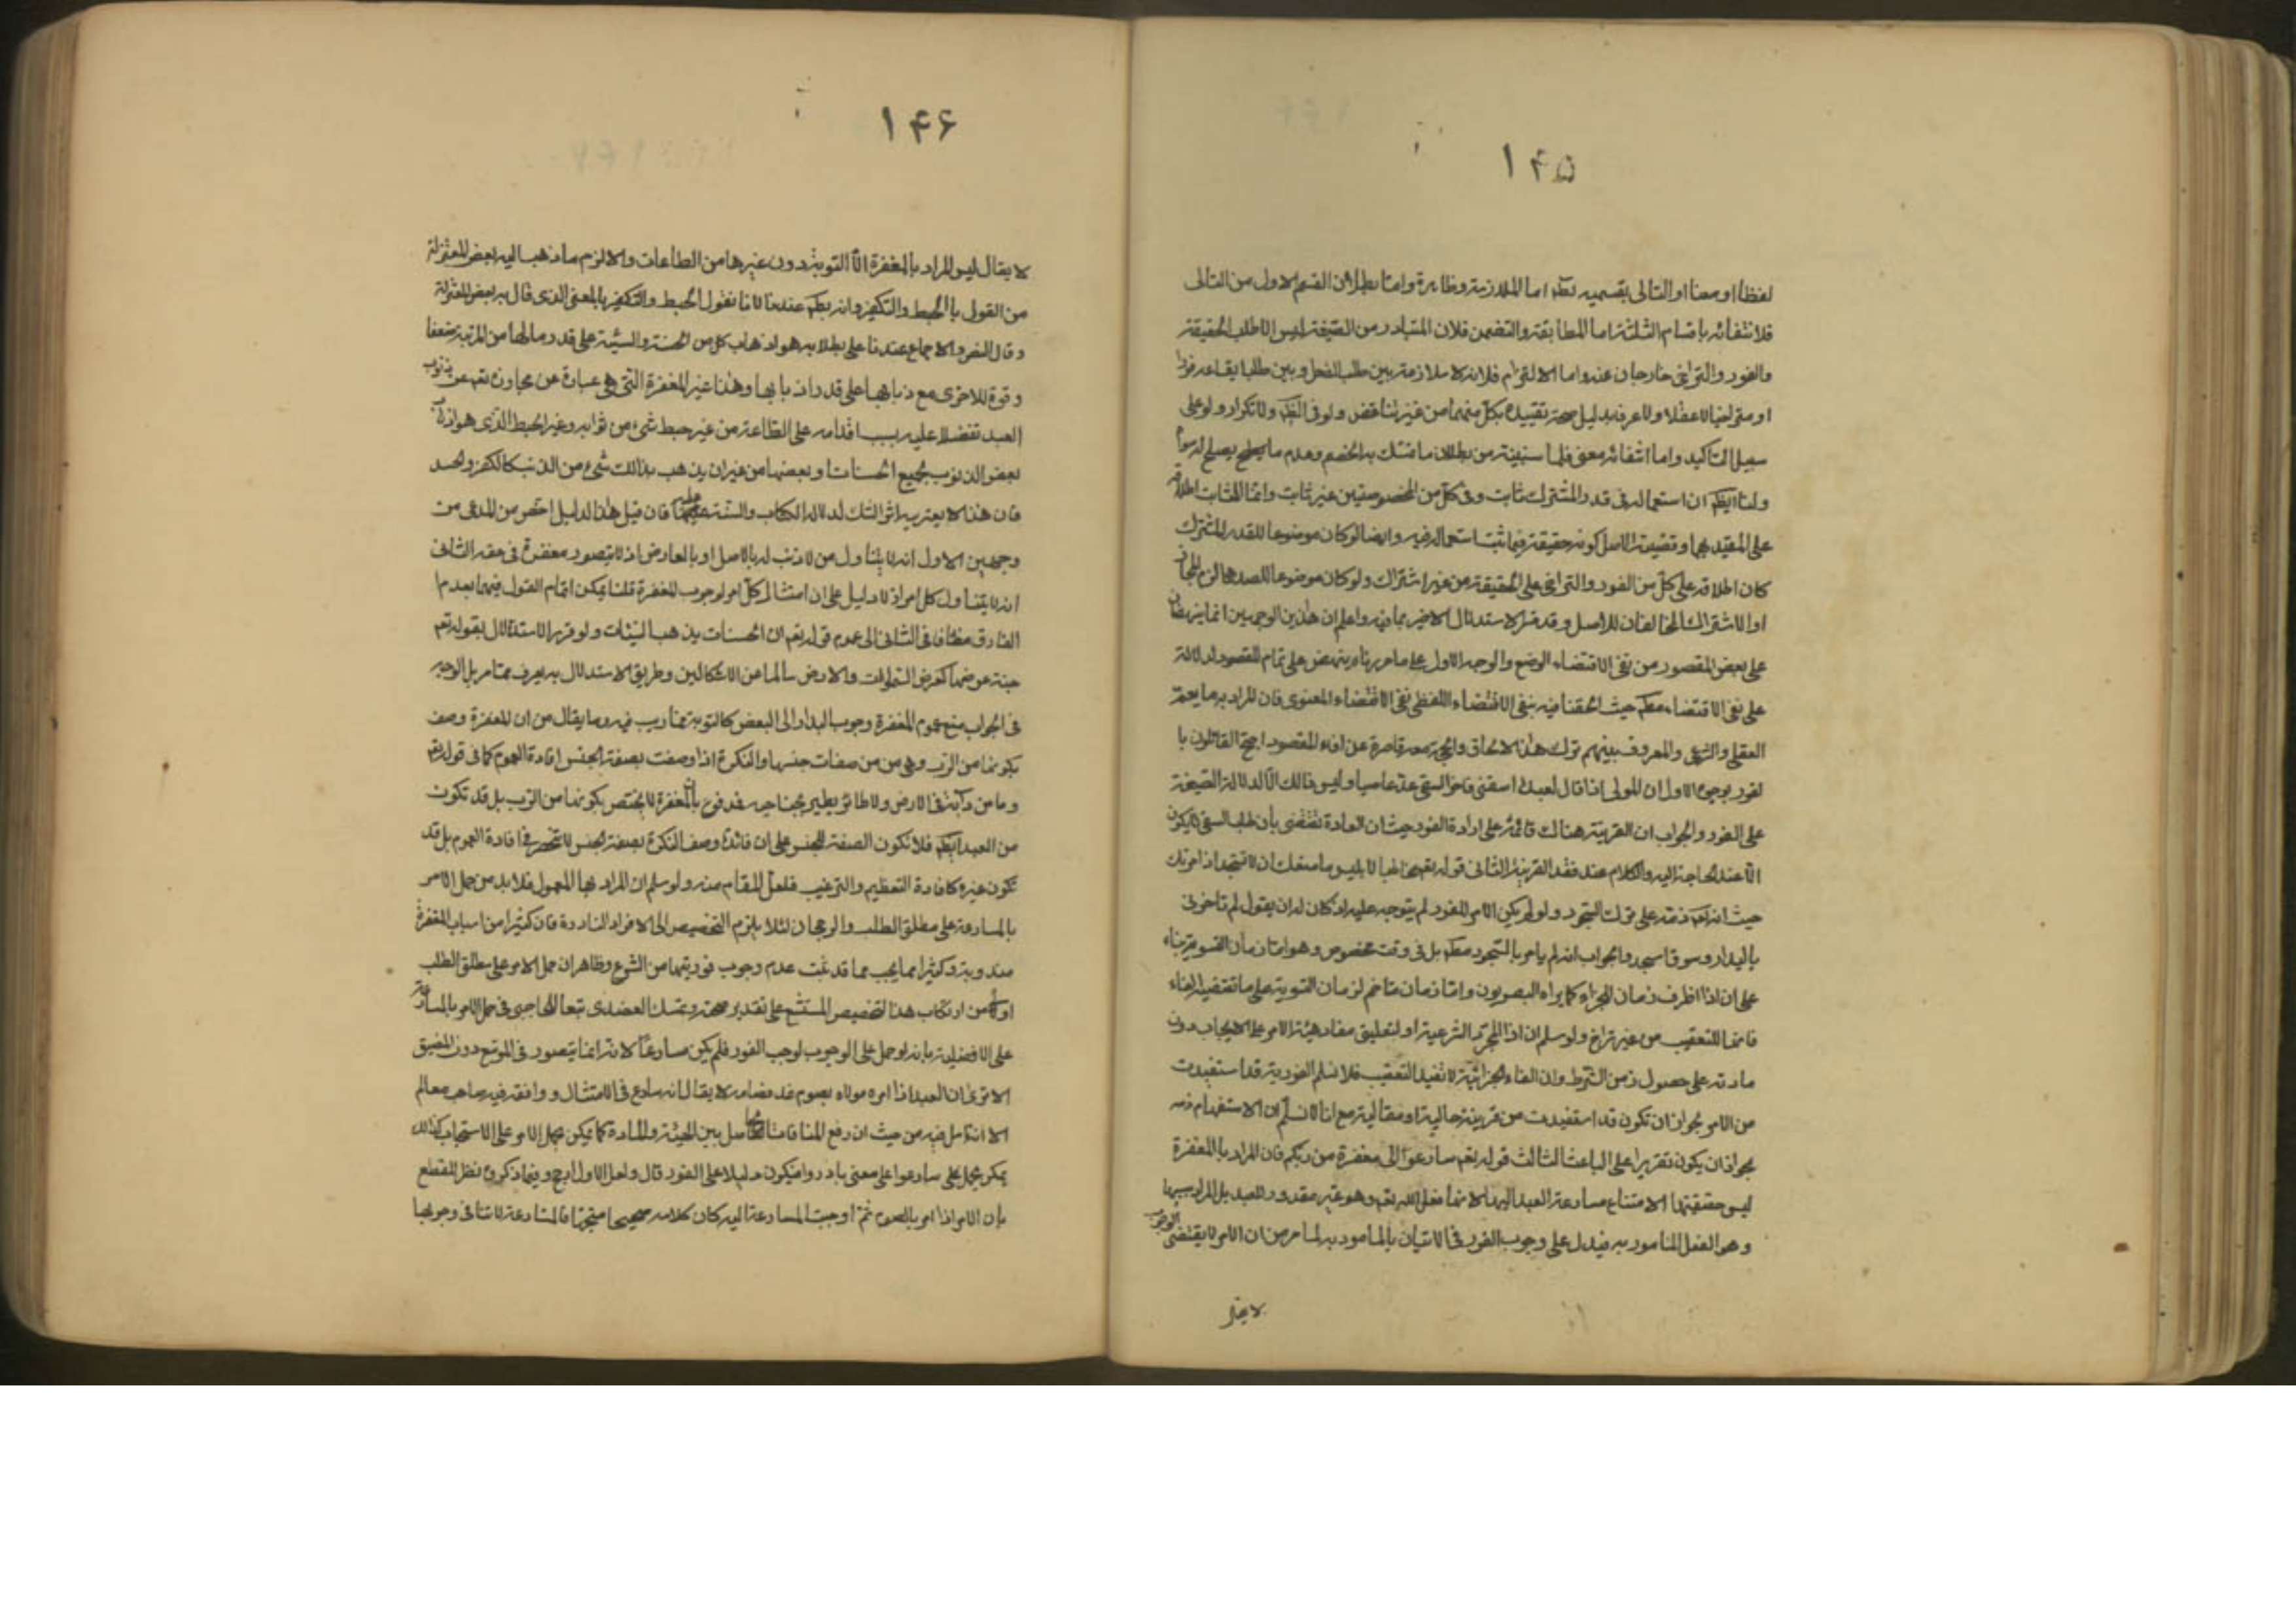 ۱۴۵
لفظا او معنا او التالى بقسميه بط اما الملازمة وظاهرة واما بطلان القسم الاول من التالى
فلانتفائه باقسام الثلثة اما المطابقة والتضمن فلان المتبادر من الصيغة ليس الا طلب الحقيقة
والفور والتراخى خارجان عنه واما الالتزام فلانه لا ملازمة بين طلب الفعل وبين طلب ايقاعه فورا
او متراخيا لا عقلا ولا عرفا بدليل صحة تقييده بكل منهما من غير تناقض ولو فى النظر ولا تكرار ولو على
سبيل التاكيد واما انتفائه معنى فلما سنبينه من بطلان ما تمسك به الخصم وعدم ما يصلح له سواه
ولنا ايضا ان استعماله فى قدر المشترك ثابت وفى كل من الخصوصيتين غير ثابت وانما الثابت اطلاقه
على المقيد بهما وقضية الاصل كونه حقيقة فيما ثبت استعماله فيه وايضا لو كان موضوعا للقدر المشترك
كان اطلاقه على كل من الفور والتراخى على الحقيقة من غير اشتراك ولو كان موضوعا للصدهما لزم المجاز
او الاشتراك المخالفان للاصل وقد مر الاستدلال الاخير بما فيه واعلم ان هذين الوجهين انما ينهضان
على بعض المقصود من نفى الاقتضاء الوضع والوجه الاول على ما حررناه ينهض على تمام المقصود لدلالة
على نفى الاقتضاء مطلقا حيث الحقنا فيه بنفى الاقتضاء اللفظى نفى الاقتضاء المعنوى فان المراد به ما يعم
العقلى والشرعى والمعروف بينهم ترك هذا الالحاق والحجة معه قاصرة عن افاء المقصود احتج القائلون با
لفور بوجوه الاول ان المولى اذا قال لعبده اسقنى فاخر السقى عد عاصيا وليس ذالك الا لدلالة الصيغة
على الفور والجواب ان القرينة هناك قائمة على ارادة الفور حيث ان العادة تقتضى بان طلب السقى لا يكون
الا عند الحاجة اليه والكلام عند فقد القرينة الثانى قوله تعم مخاطبا لابليس ما منعك ان لا تسجد اذ امرتك
حيث انه تعم ذمه على ترك السجود ولو لم يكن الامر للفور لم يتوجه عليه اذ كان له ان يقول لم تاخرنى
بالبدار وسوف اسجد والجواب انه لم يامر بالسجود مطلقا بل فى وقت مخصوص وهو اما زمان التسوية بناء
على ان اذا ظرف زمان الجزاء كما يراه البصريون واما زمان متاخم لزمان التسوية على ما تقتضيه الفاء
فانها للتعقيب من غير تراخ ولو سلم ان اذا لمجرد الشرعية او لتعليق مفاد هيئة الامر على الايجاب دون
مادته على حصول زمن الشرط وان الفاء الجزائية لا تفيد التعقيب فلا نسلم الفورية قد استفيدت
من الامر لجواز ان تكون قد استفيدت من قرينة حالية او مقالية مع انا لا نسلم ان الاستفهام ذمه
لجواز ان يكون تقريرا على الباعث الثالث قوله تعم سارعوا الى مغفرة من ربكم فان المراد بالمغفرة
ليس حقيقتها لامتناع مسارعة العبد اليها لانها فعل الله تعم وهو غير مقدور للعبد بل المراد سببها
وهو الفعل المامور به فيدل على وجوب الفور فى الاتيان بالمامور به لما مر من ان الامر لا يقتضى الوجوب
لا يقال
۱۴۶
لا يقال ليس المراد بالمغفرة الا التوبة دون غيرها من الطاعات والا لزم ما ذهب اليه بعض المعتزلة
من القول بالحبط والتكفير وانه بط عندنا لانا نقول الحبط والتكفير بالمعنى الذى قال به بعض المعتزلة
وقال النص والاجماع عندنا على بطلانه هو اذهاب كل من الحسنة والسيئة على قدر ما لها من المرتبة ضعفا
وقوة للاخرى مع ذهابها على قدر اذهابها وهذا غير المغفرة التى هى عبارة عن تجاوزه تعم عن ذنوب
العبد تفضلا عليه بسبب اقدامه على الطاعة من غير حبط شىء من ثوابه وغير الحبط الذى هو اذهاب
بعض الذنوب بجميع الحسنات او بعضها من غير ان يذهب بذالك شىء من الذنب كالكفر والحسد
فان هذا لا يعتريه اثر الشك لدلالة الكتاب والسنة عليهما فان قيل هذا الدليل اخص من المدعى من
وجهين الاول انه لا يتناول من لا ذنب له بالاصل او بالعارض اذ لا يتصور مغفرة فى حقه الثانى
انه لا يتناول كل امر اذ لا دليل على ان امتثال كل امر لوجوب المغفرة قلنا يمكن اتمام القول فيهما بعدم ا
لفارق مضافا فى الثانى الى عموم قوله تعم ان الحسنات يذهبن السيئات ولو قرر الاستدلال بقوله تعم
جنة عرضها كعرض السموات والارض سالما من الاشكالين وطريق الاستدلال به يعرف مما مر بل الوجه
فى الجواب منع عموم المغفرة وجوب البدار الى البعض كالتوبة مما لا ريب فيه وما يقال من ان المغفرة وصف
بكونها من الرب وهى من من صفات جنسها والنكرة اذا وصفت بصفة الجنس افادة العموم كما فى قوله تعم
وما من دابة فى الارض ولا طائر يطير بجناحيه فمدفوع بان المغفرة لا يختص بكونها من الرب بل قد تكون
من العبد ايضا فلا تكون الصفة للجنس على ان فائدة وصف النكرة بصفة الجنس لا تنحصر فى افادة العموم بل قد
تكون غيره كافادة التعظيم والترغيب فلعل المقام منه ولو سلم ان المراد بها العموم فلا بد من حمل الامر
بالمسارعة على مطلق الطلب والرجحان لئلا يلزم التخصيص الى الافراد النادرة فان كثيرا من اسباب المغفرة
مندوبة وكثيرا مما يجب مما قد ثبت عدم وجوب فوريتها من الشرع وظاهر ان حمل الامر على مطلق الطلب
اولى من ارتكاب هذا التخصيص المستبشع على تقدير صحته وتمسك العضدى تبعا للحاجبى فى حمل الامر بالمسارعة
على الافضلية بانه لو حمل على الوجوب لوجب الفور فلم يكن مسارعا لانه انما يتصور فى الموسع دون المضيق
الا ترى ان العبد اذا امره مولاه بصوم غد فصامه لا يقال انه سارع فى الامتثال ووافقه فيه صاحب معالم
الا انه تامل فيه من حيث ان رفع المنافات الحاصل بين الهيئة والمادة كما يمكن بحمل الامر على الاستحباب كذالك
يمكن بحمل على سارعوا على معنى بادروا فيكون دليلا على الفور قال ولعل الاول ارجح وفيما ذكروه نظر للقطع
بان الامر اذا امر بالصوم ثم اوجب المسارعة اليه كان كلامه صحيحا متجها فالمسارعة لا تنافى وجوبها